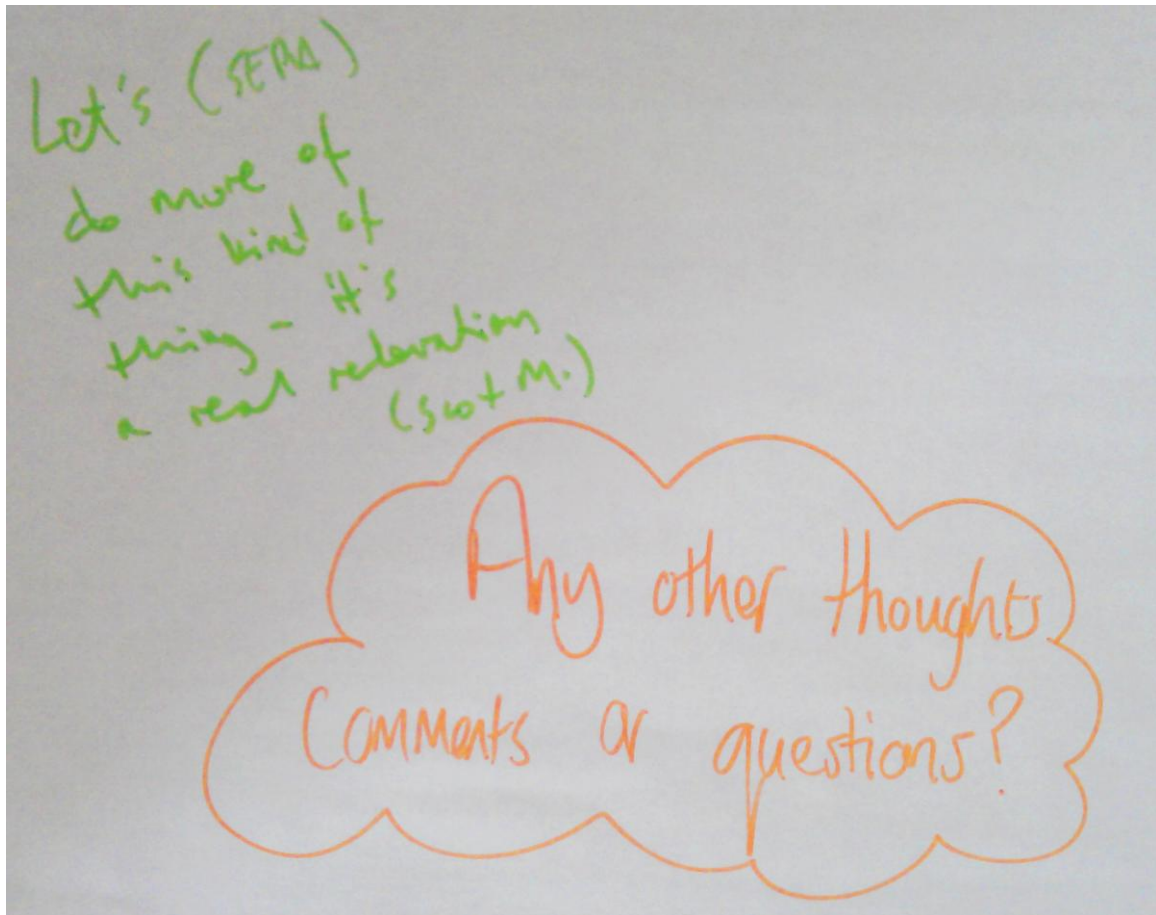 Let's (SERA)
do more of
this kind of
thing - it's
a real relevation
(Scot M.)
Any other thoughts
Comments or questions?